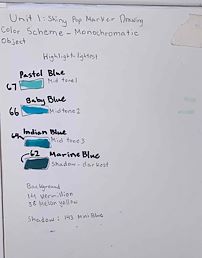 Unit 1: Shiny Pop Marker Drawing
Color Scheme - Monochromatic
Object
Highlight-lightest
Pastel Blue
67 Mid tone 1
Baby Blue
66 Mid tone 2
Indian Blue
64 Mid tone 3
62 Marine Blue
Shadow - darkest
Background
141 Vermillion
38 Melon Yellow
Shadow: 143 Mini Blue